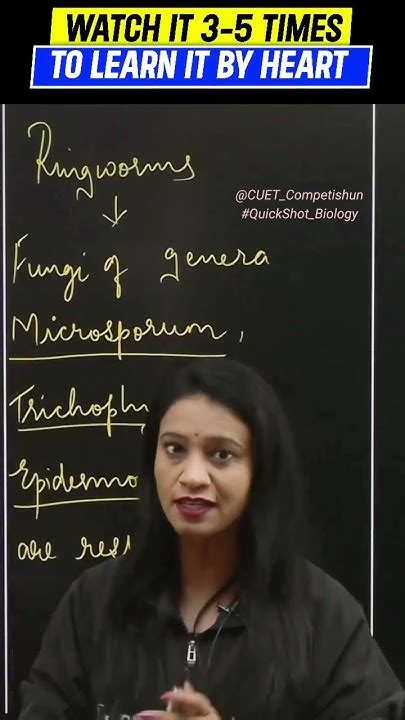 WATCH IT 3-5 TIMES
TO LEARN IT BY HEART
Ringworms
@CUET_Competishun
#QuickShot_Biology
Fungi of genera
Microsporum,
Trichoph
Epidermo
are res